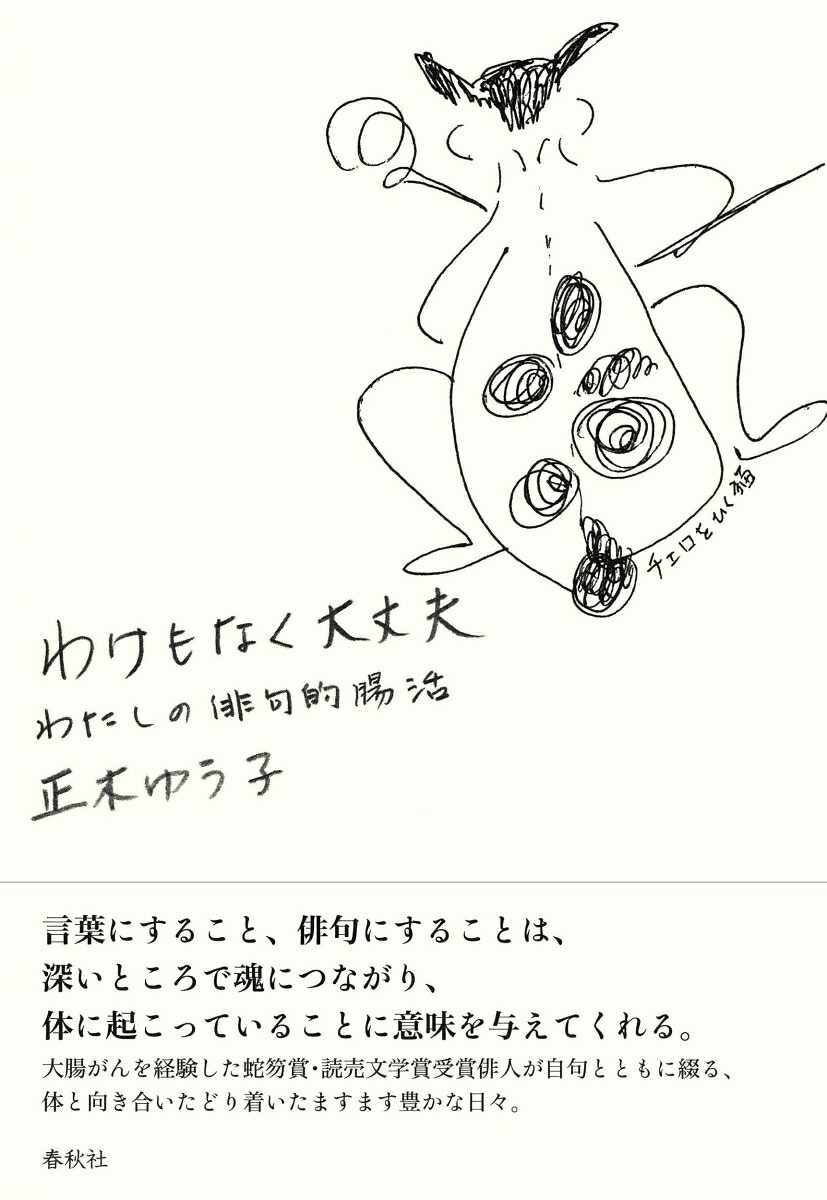 チェロをひく猫
わけもなく大丈夫
わたしの俳句的腸活
正木ゆう子
言葉にすること、俳句にすることは、
深いところで魂につながり、
体に起こっていることに意味を与えてくれる。
大腸がんを経験した蛇笏賞・読売文学賞受賞俳人が自句とともに綴る、
体と向き合いたどり着いたますます豊かな日々。
春秋社